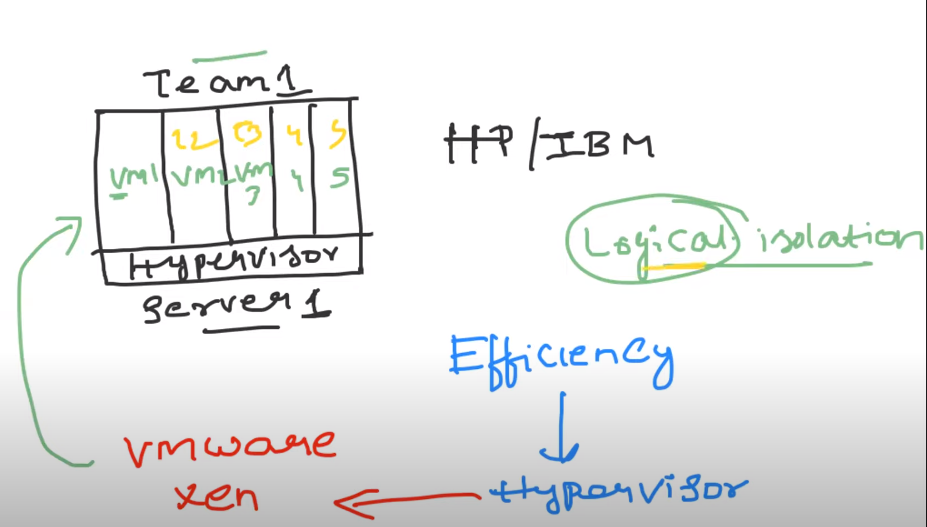 Team 1
12 13 4 5
VM1 VM2 VM 4 5
3
Hypervisor
Server 1
HP/IBM
Logical isolation
Efficiency
Hypervisor
vmware
xen